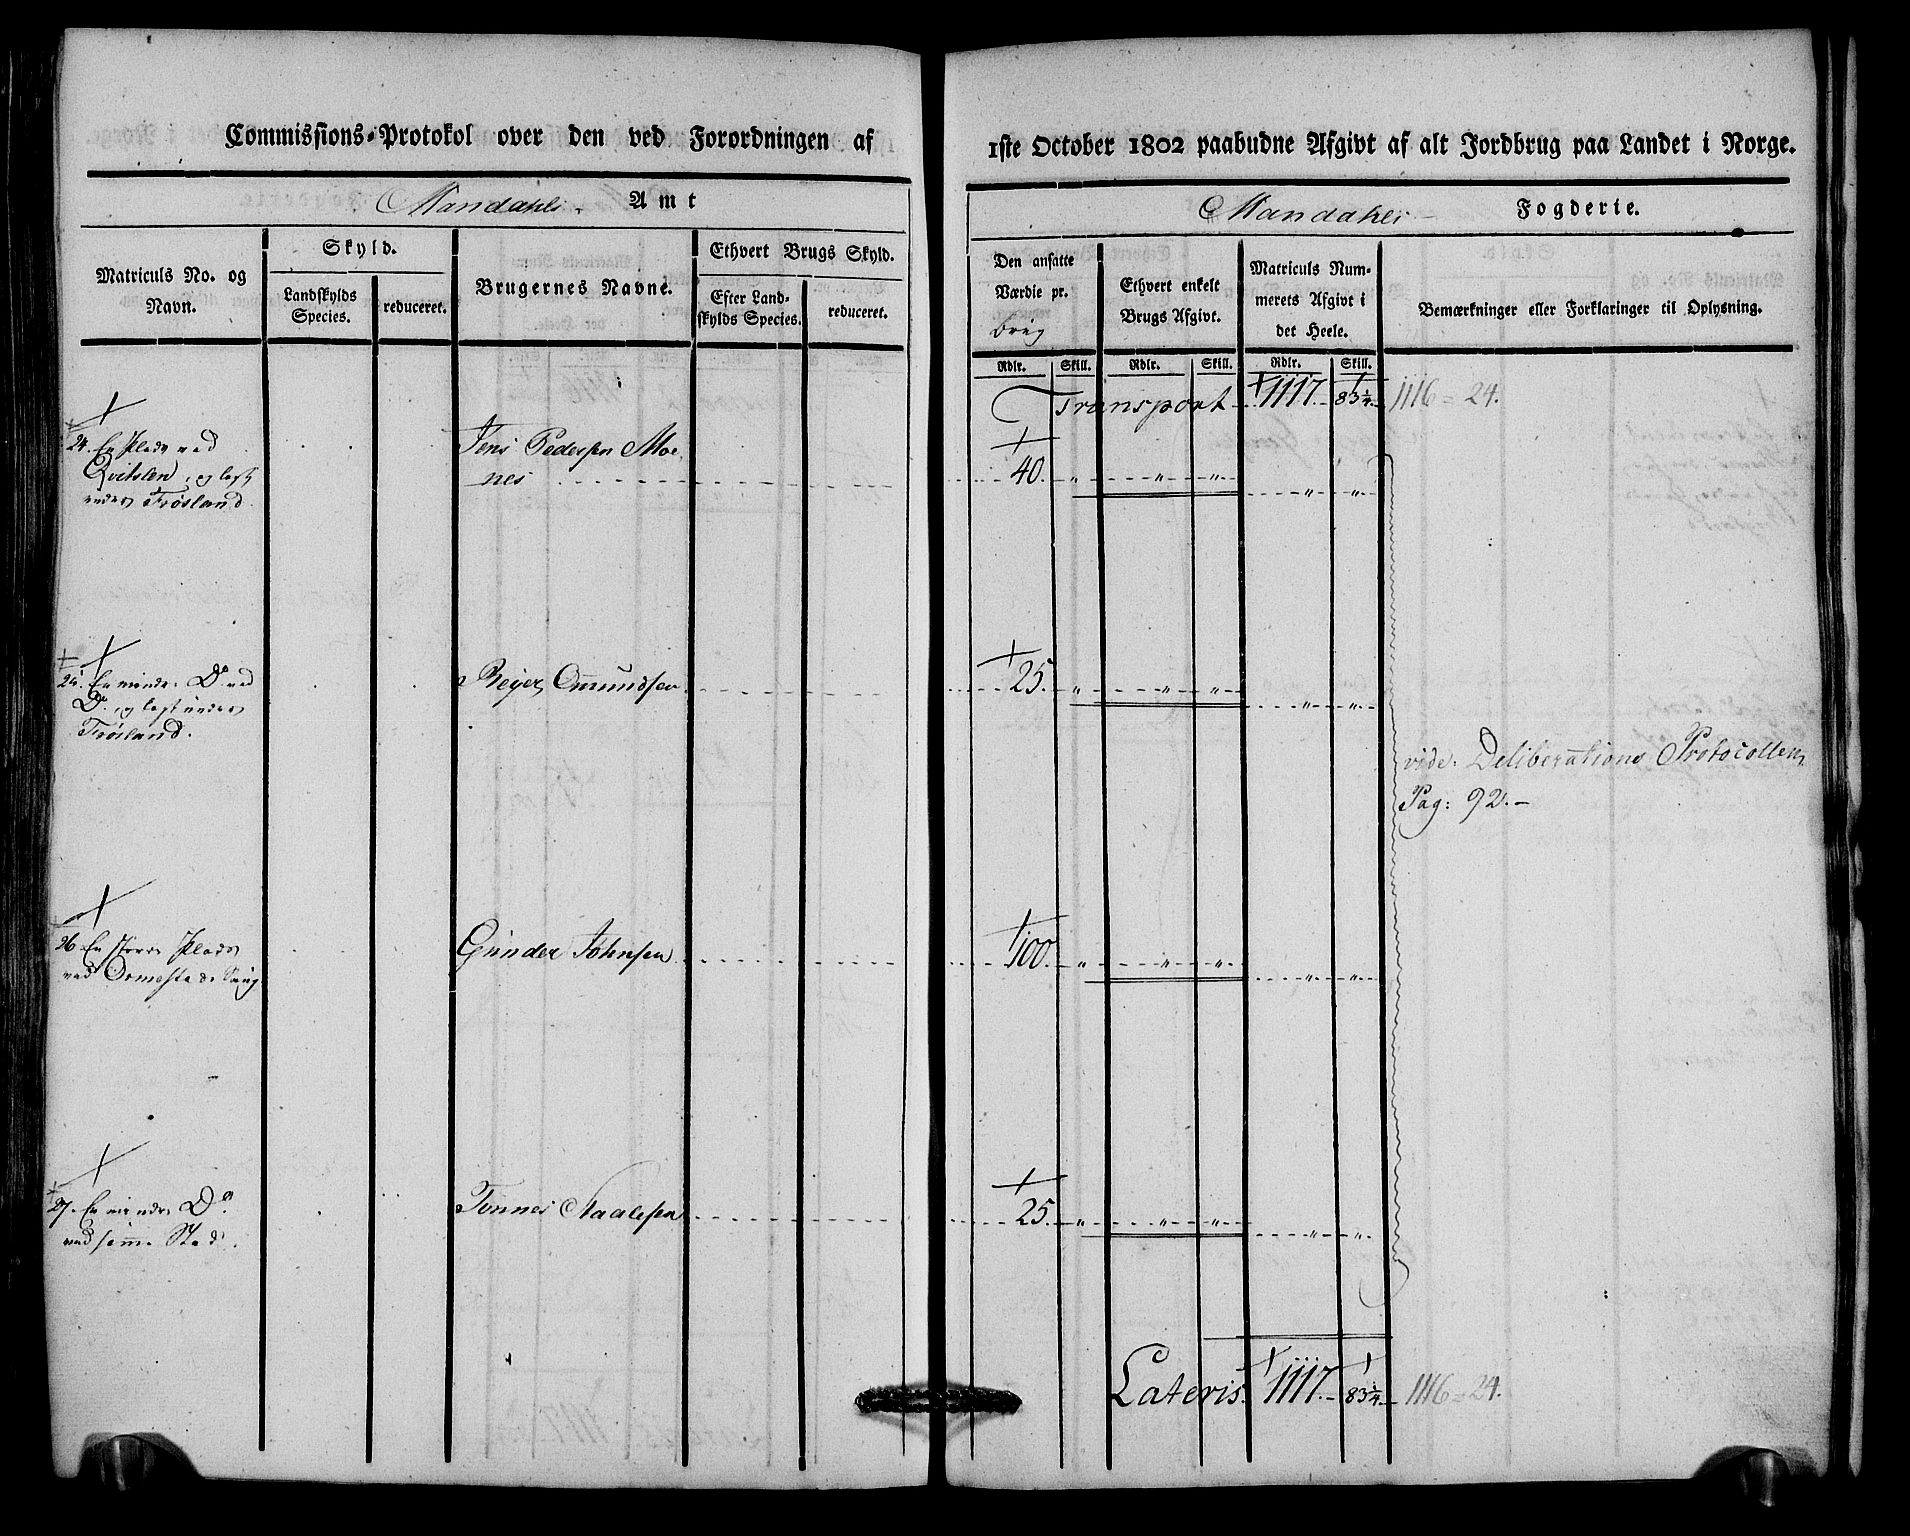 Commissions-Protokol over den ved Forordningen af
Mandahls Amt
Matriculs No. og
Navn.
Skyld.
Landskylds
Species.
reduceret.
Brugernes Navne.
Ethvert Brugs Skyld.
Efter Land-
skylds Species.
reduceret.
24. En Plads ved
Qvitslen, og last
under Frøsland.
Jens Pedersen Moe-
nes
25. En mindre Do. ved
Do. og last under
Frøsland.
Reyer Omundsen
26. En større Plads
ved Ormestade Vaag
Gunder Johnsen
27. En mindre Do.
ved samme Sted.
Tønnes Aaalesen
1ste October 1802 paabudne Afgivt af alt Jordbrug paa Landet i Norge.
Mandahls Fogderie.
Den ansatte
Værdie pr.
Brug
Ethvert enkelt
Brugs Afgivt.
Matriculs Num-
merets Afgivt i
det Heele.
Bemærkninger eller Forklaringer til Oplysning.
Rdlr. Skill. Rdlr. Skill. Rdlr. Skill.
Transport 1117. 83 1/4. 1116 = 24.
40. " " " " "
25. " " " " "
vide. Deliberations Protocollen
Pag: 92.-
100. " " " " "
25. " " " " "
Lateris. 1117. 83 1/4. 1116 = 24.